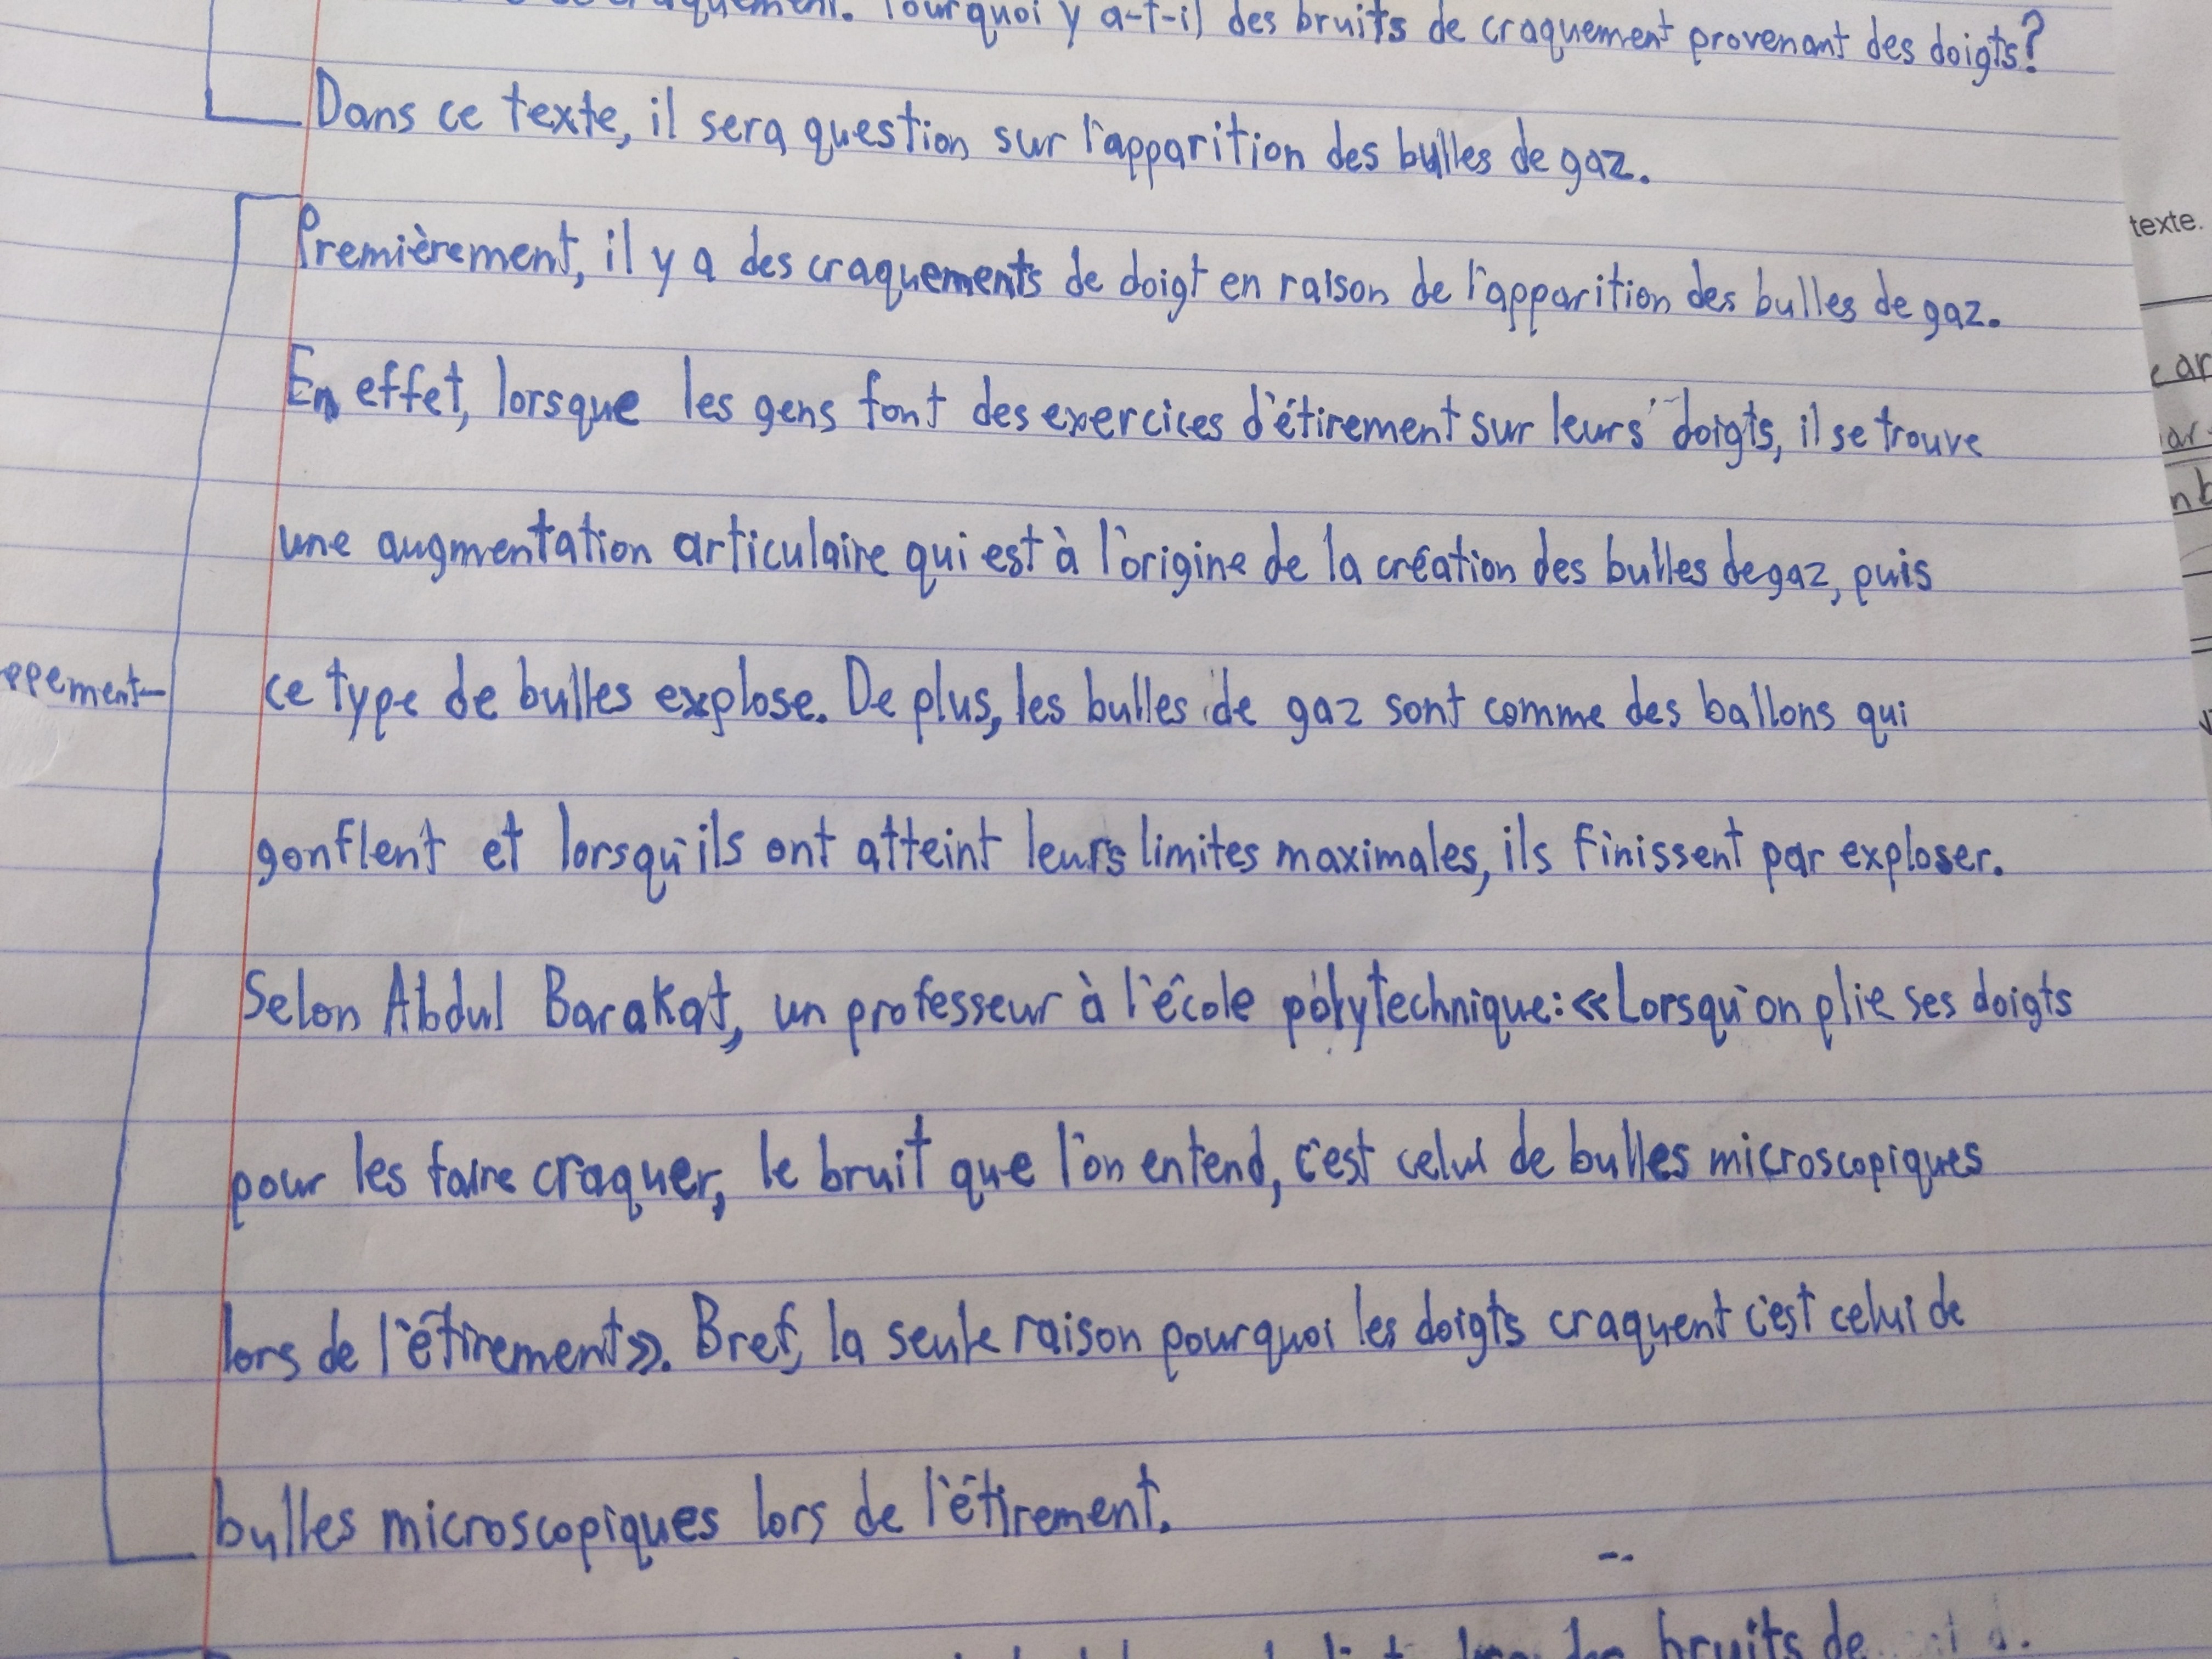 craquement. Pourquoi y a-t-il des bruits de craquement provenant des doigts?
Dans ce texte, il sera question sur l'apparition des bulles de gaz.
texte.
Premièrement, il y a des craquements de doigt en raison de l'apparition des bulles de gaz.
En effet, lorsque les gens font des exercices d'étirement sur leurs doigts, il se trouve
une augmentation articulaire qui est à l'origine de la création des bulles de gaz, puis
ppement
ce type de bulles explose. De plus, les bulles de gaz sont comme des ballons qui
gonflent et lorsqu'ils ont atteint leurs limites maximales, ils finissent par exploser.
Selon Abdul Barakat, un professeur à l'école polytechnique: «Lorsqu'on plie ses doigts
pour les faire craquer, le bruit que l'on entend, c'est celui de bulles microscopiques
lors de l'étirement». Bref, la seule raison pourquoi les doigts craquent c'est celui de
bulles microscopiques lors de l'étirement.
bruits de